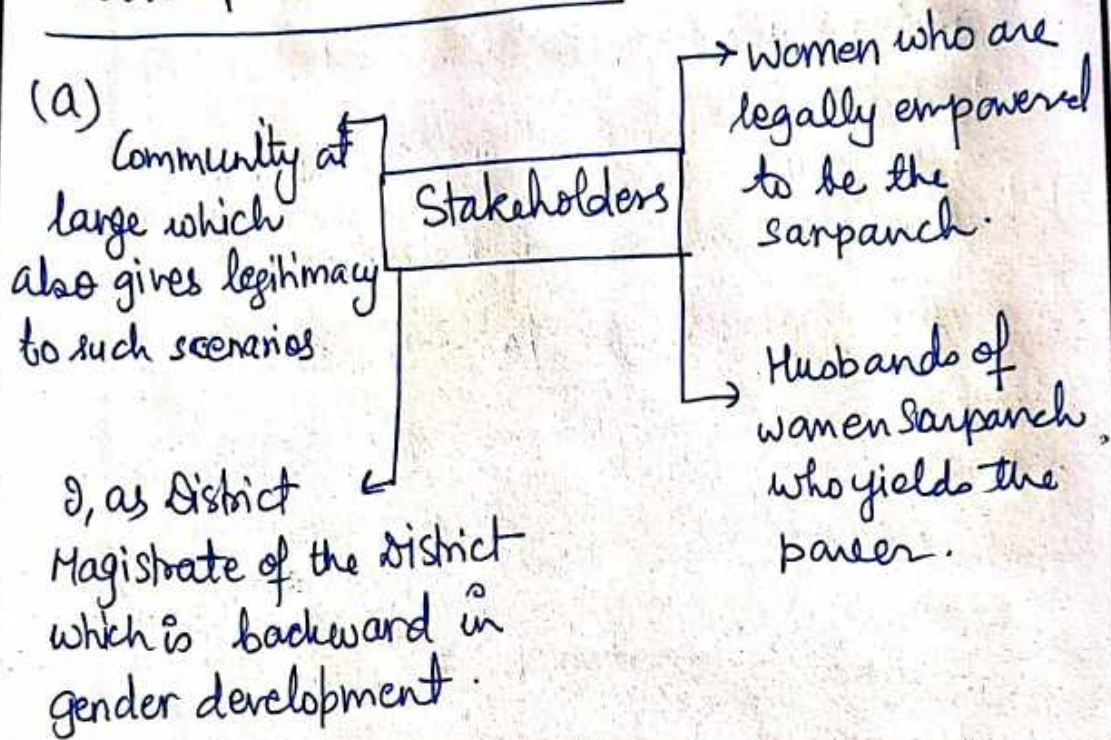 (a)
Community at
large which
also gives legitimacy
to such scenarios.
Stakeholders
Women who are
legally empowered
to be the
sarpanch.
Husbands of
women Sarpanch,
who yields the
power.
I, as District
Magistrate of the District
which is backward in
gender development.